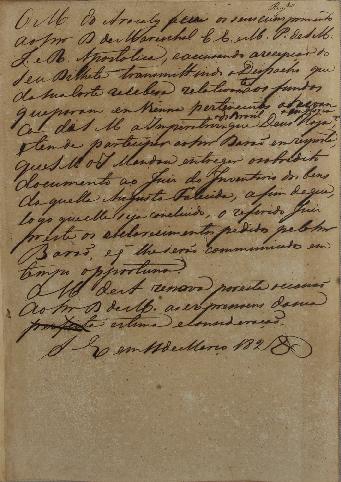 O M. de Aracaty faz os seus cumprimentos
ao Snr B. de Mareschal E. E. e M. P. de S. M.
I. e R. Apostolica, e accusando a recepção do
seu Bilhete transmittindo o Despacho que
da sua Corte recebera relativo aos fundos
que param em Vienna pertencentes
de S. M. a Imperatriz que Deus haja
tem de participar ao Snr Barão em resposta
que S. M. o I. Mandou entregar o sobredito
documento ao Juiz do Inventario dos bens
daquella Augusta Fallecida, a fim de que,
logo que elle seja concluido, o referido Juiz
preste os esclarecimentos pedidos pelo Snr
Barão, e q lhe serão communicados em
tempo opportuno.
O M. de A. renova por esta occasião
ao Snr B. de M. as expressoens da sua
estima e consideração.
S. C. em 11 de Março 182